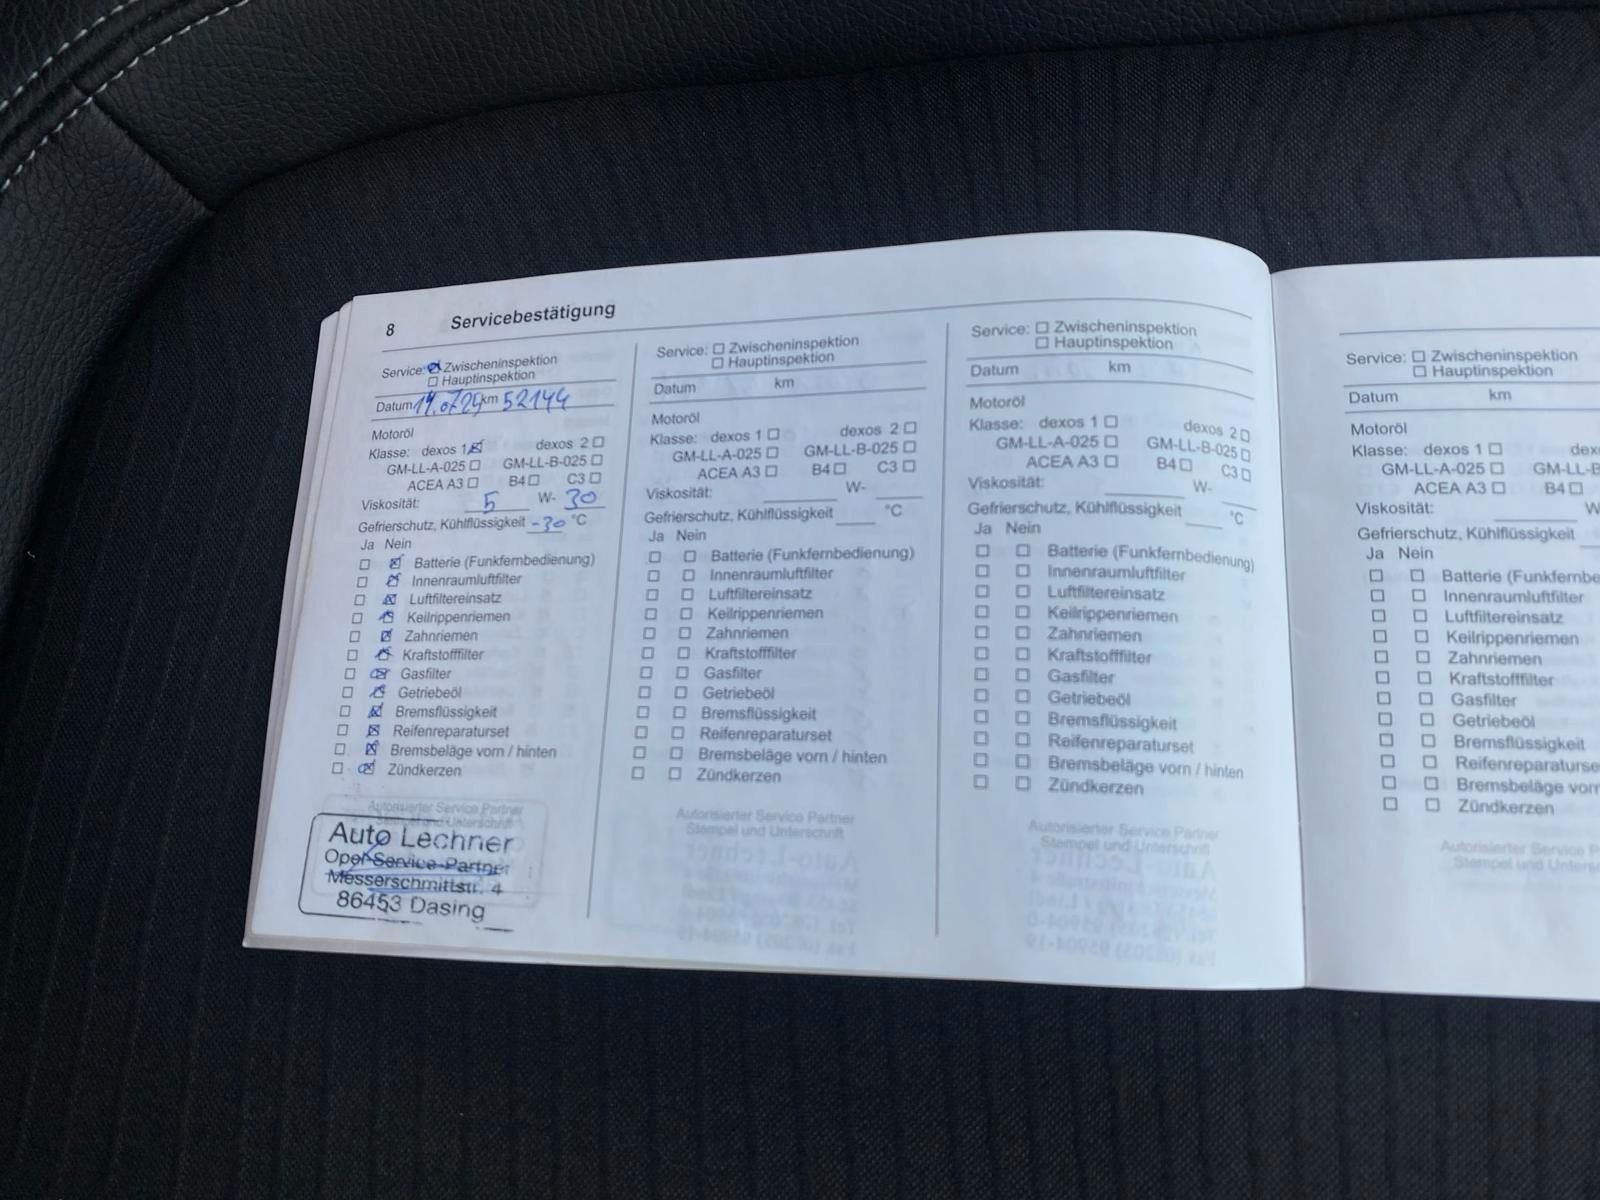 8 Servicebestätigung
Service: Zwischeninspektion
Hauptinspektion
Datum km 52144
Motoröl
Klasse: dexos 1 dexos 2
GM-LL-A-025 GM-LL-B-025
ACEA A3 B4 C3
Viskosität: 5 W- 30
Gefrierschutz, Kühlflüssigkeit -30 °C
Ja Nein
Batterie (Funkfernbedienung)
Innenraumluftfilter
Luftfiltereinsatz
Keilrippenriemen
Zahnriemen
Kraftstofffilter
Gasfilter
Getriebeöl
Bremsflüssigkeit
Reifenreparaturset
Bremsbeläge vorn / hinten
Zündkerzen
Autorisierter Service Partner
Stempel und Unterschrift
Auto Lechner
Opel-Service-Partner
Messerschmittstr. 4
86453 Dasing
Service: Zwischeninspektion
Hauptinspektion
Datum km
Motoröl
Klasse: dexos 1 dexos 2
GM-LL-A-025 GM-LL-B-025
ACEA A3 B4 C3
Viskosität: W-
Gefrierschutz, Kühlflüssigkeit °C
Ja Nein
Batterie (Funkfernbedienung)
Innenraumluftfilter
Luftfiltereinsatz
Keilrippenriemen
Zahnriemen
Kraftstofffilter
Gasfilter
Getriebeöl
Bremsflüssigkeit
Reifenreparaturset
Bremsbeläge vorn / hinten
Zündkerzen
Autorisierter Service Partner
Stempel und Unterschrift
Service: Zwischeninspektion
Hauptinspektion
Datum km
Motoröl
Klasse: dexos 1 dexos 2
GM-LL-A-025 GM-LL-B-025
ACEA A3 B4 C3
Viskosität: W-
Gefrierschutz, Kühlflüssigkeit °C
Ja Nein
Batterie (Funkfernbedienung)
Innenraumluftfilter
Luftfiltereinsatz
Keilrippenriemen
Zahnriemen
Kraftstofffilter
Gasfilter
Getriebeöl
Bremsflüssigkeit
Reifenreparaturset
Bremsbeläge vorn / hinten
Zündkerzen
Autorisierter Service Partner
Stempel und Unterschrift
Service: Zwischeninspektion
Hauptinspektion
Datum km
Motoröl
Klasse: dexos 1 dex
GM-LL-A-025 GM-LL-B
ACEA A3 B4
Viskosität: W
Gefrierschutz, Kühlflüssigkeit
Ja Nein
Batterie (Funkfernbe
Innenraumluftfilter
Luftfiltereinsatz
Keilrippenriemen
Zahnriemen
Kraftstofffilter
Gasfilter
Getriebeöl
Bremsflüssigkeit
Reifenreparaturse
Bremsbeläge vorn
Zündkerzen
Autorisierter Service P
Stempel und Unterschr